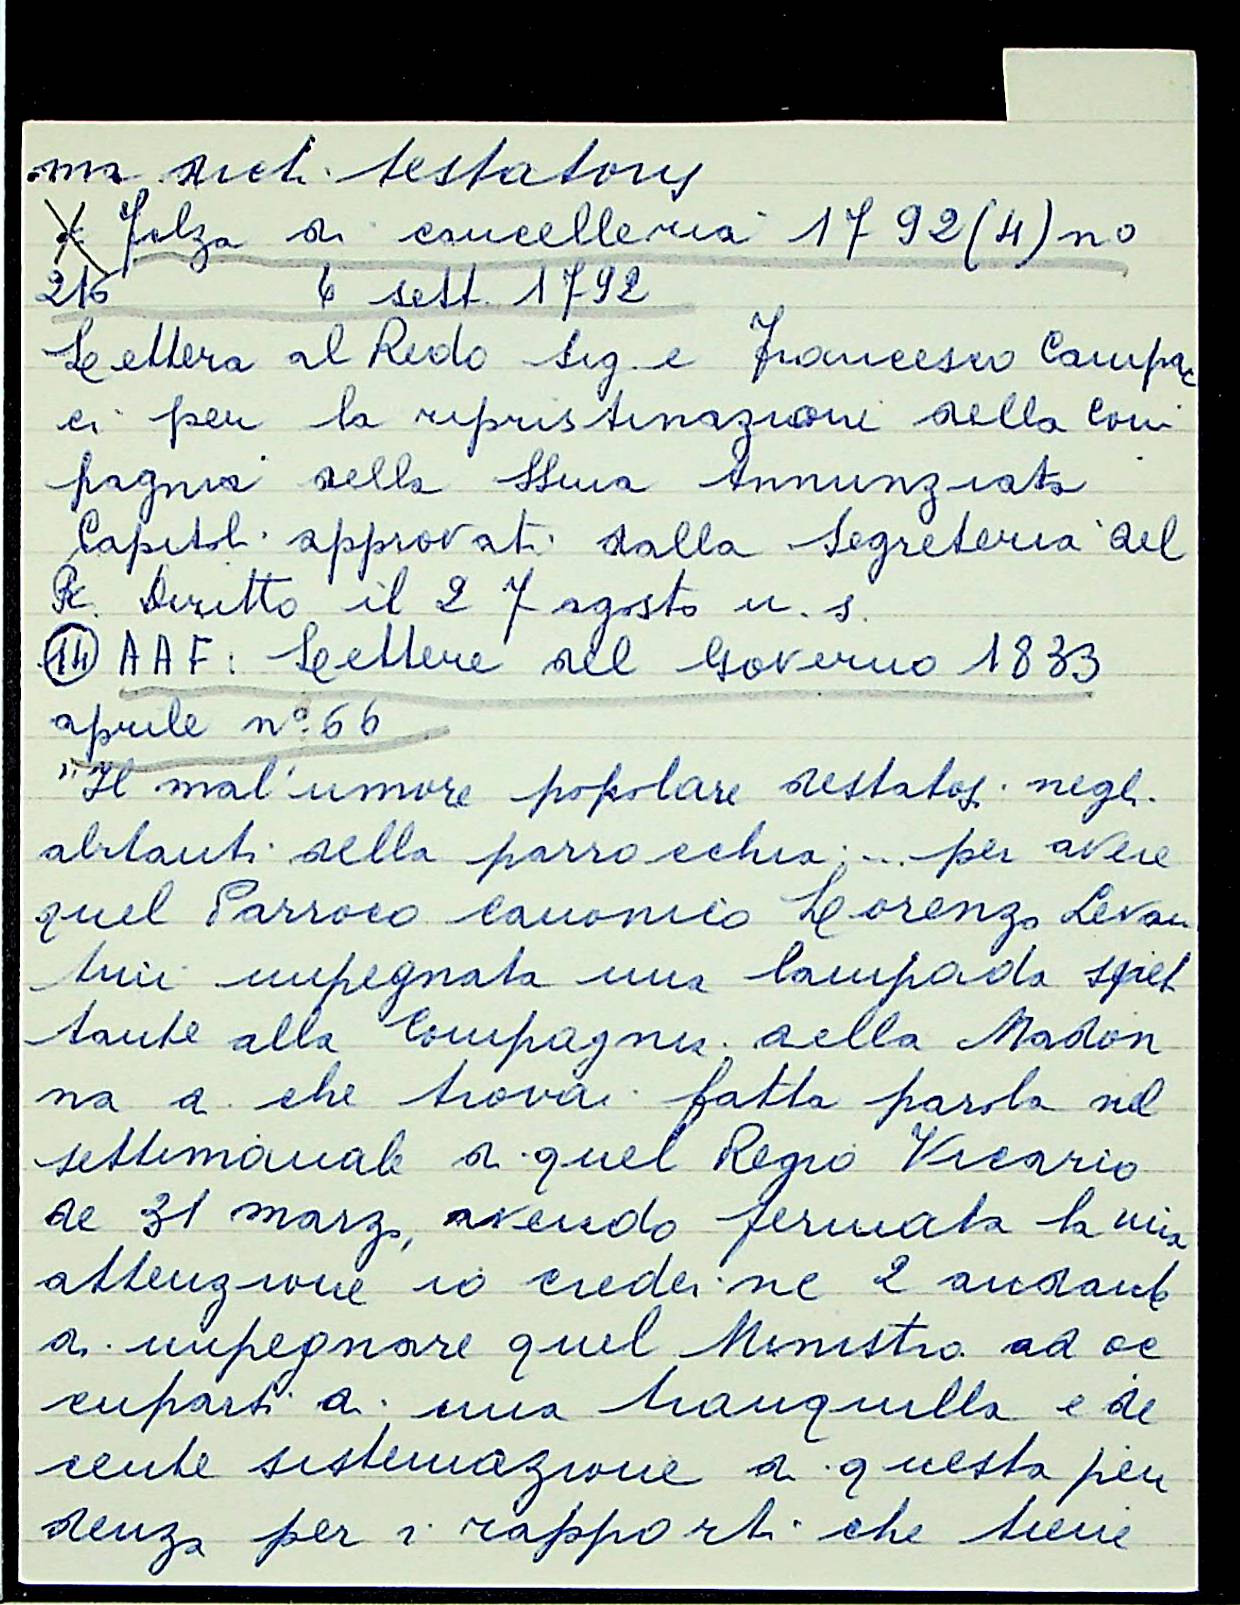 ma dicti testatoris
Filza di cancelleria 1792(4) no
216 6 sett. 1792
Lettera al Redo Sig.e Francesco Campac
ci per la ripristinazioni della Com
pagnia della SSma Annunziata
Capitoli approvati dalla Segreteria del
R. Diritto il 27 agosto u. s.
(14) AAF: Lettere del Governo 1833
aprile n° 66
"Il mal'umore popolare destatosi negli
abitanti della parrocchia ... per avere
quel Parroco canonico Lorenzo Levan
tini impegnata una lampada spet
tante alla Compagnia della Madon
na di che trovai fatta parola nel
settimanale di quel Regio Vicario
de 31 marzo, avendo fermata la mia
attenzione io credei ne 2 andante
di impegnare quel Ministro ad oc
cuparsi di una tranquilla e de
cente sistemazione di questa pen
denza per i rapporti che tiene